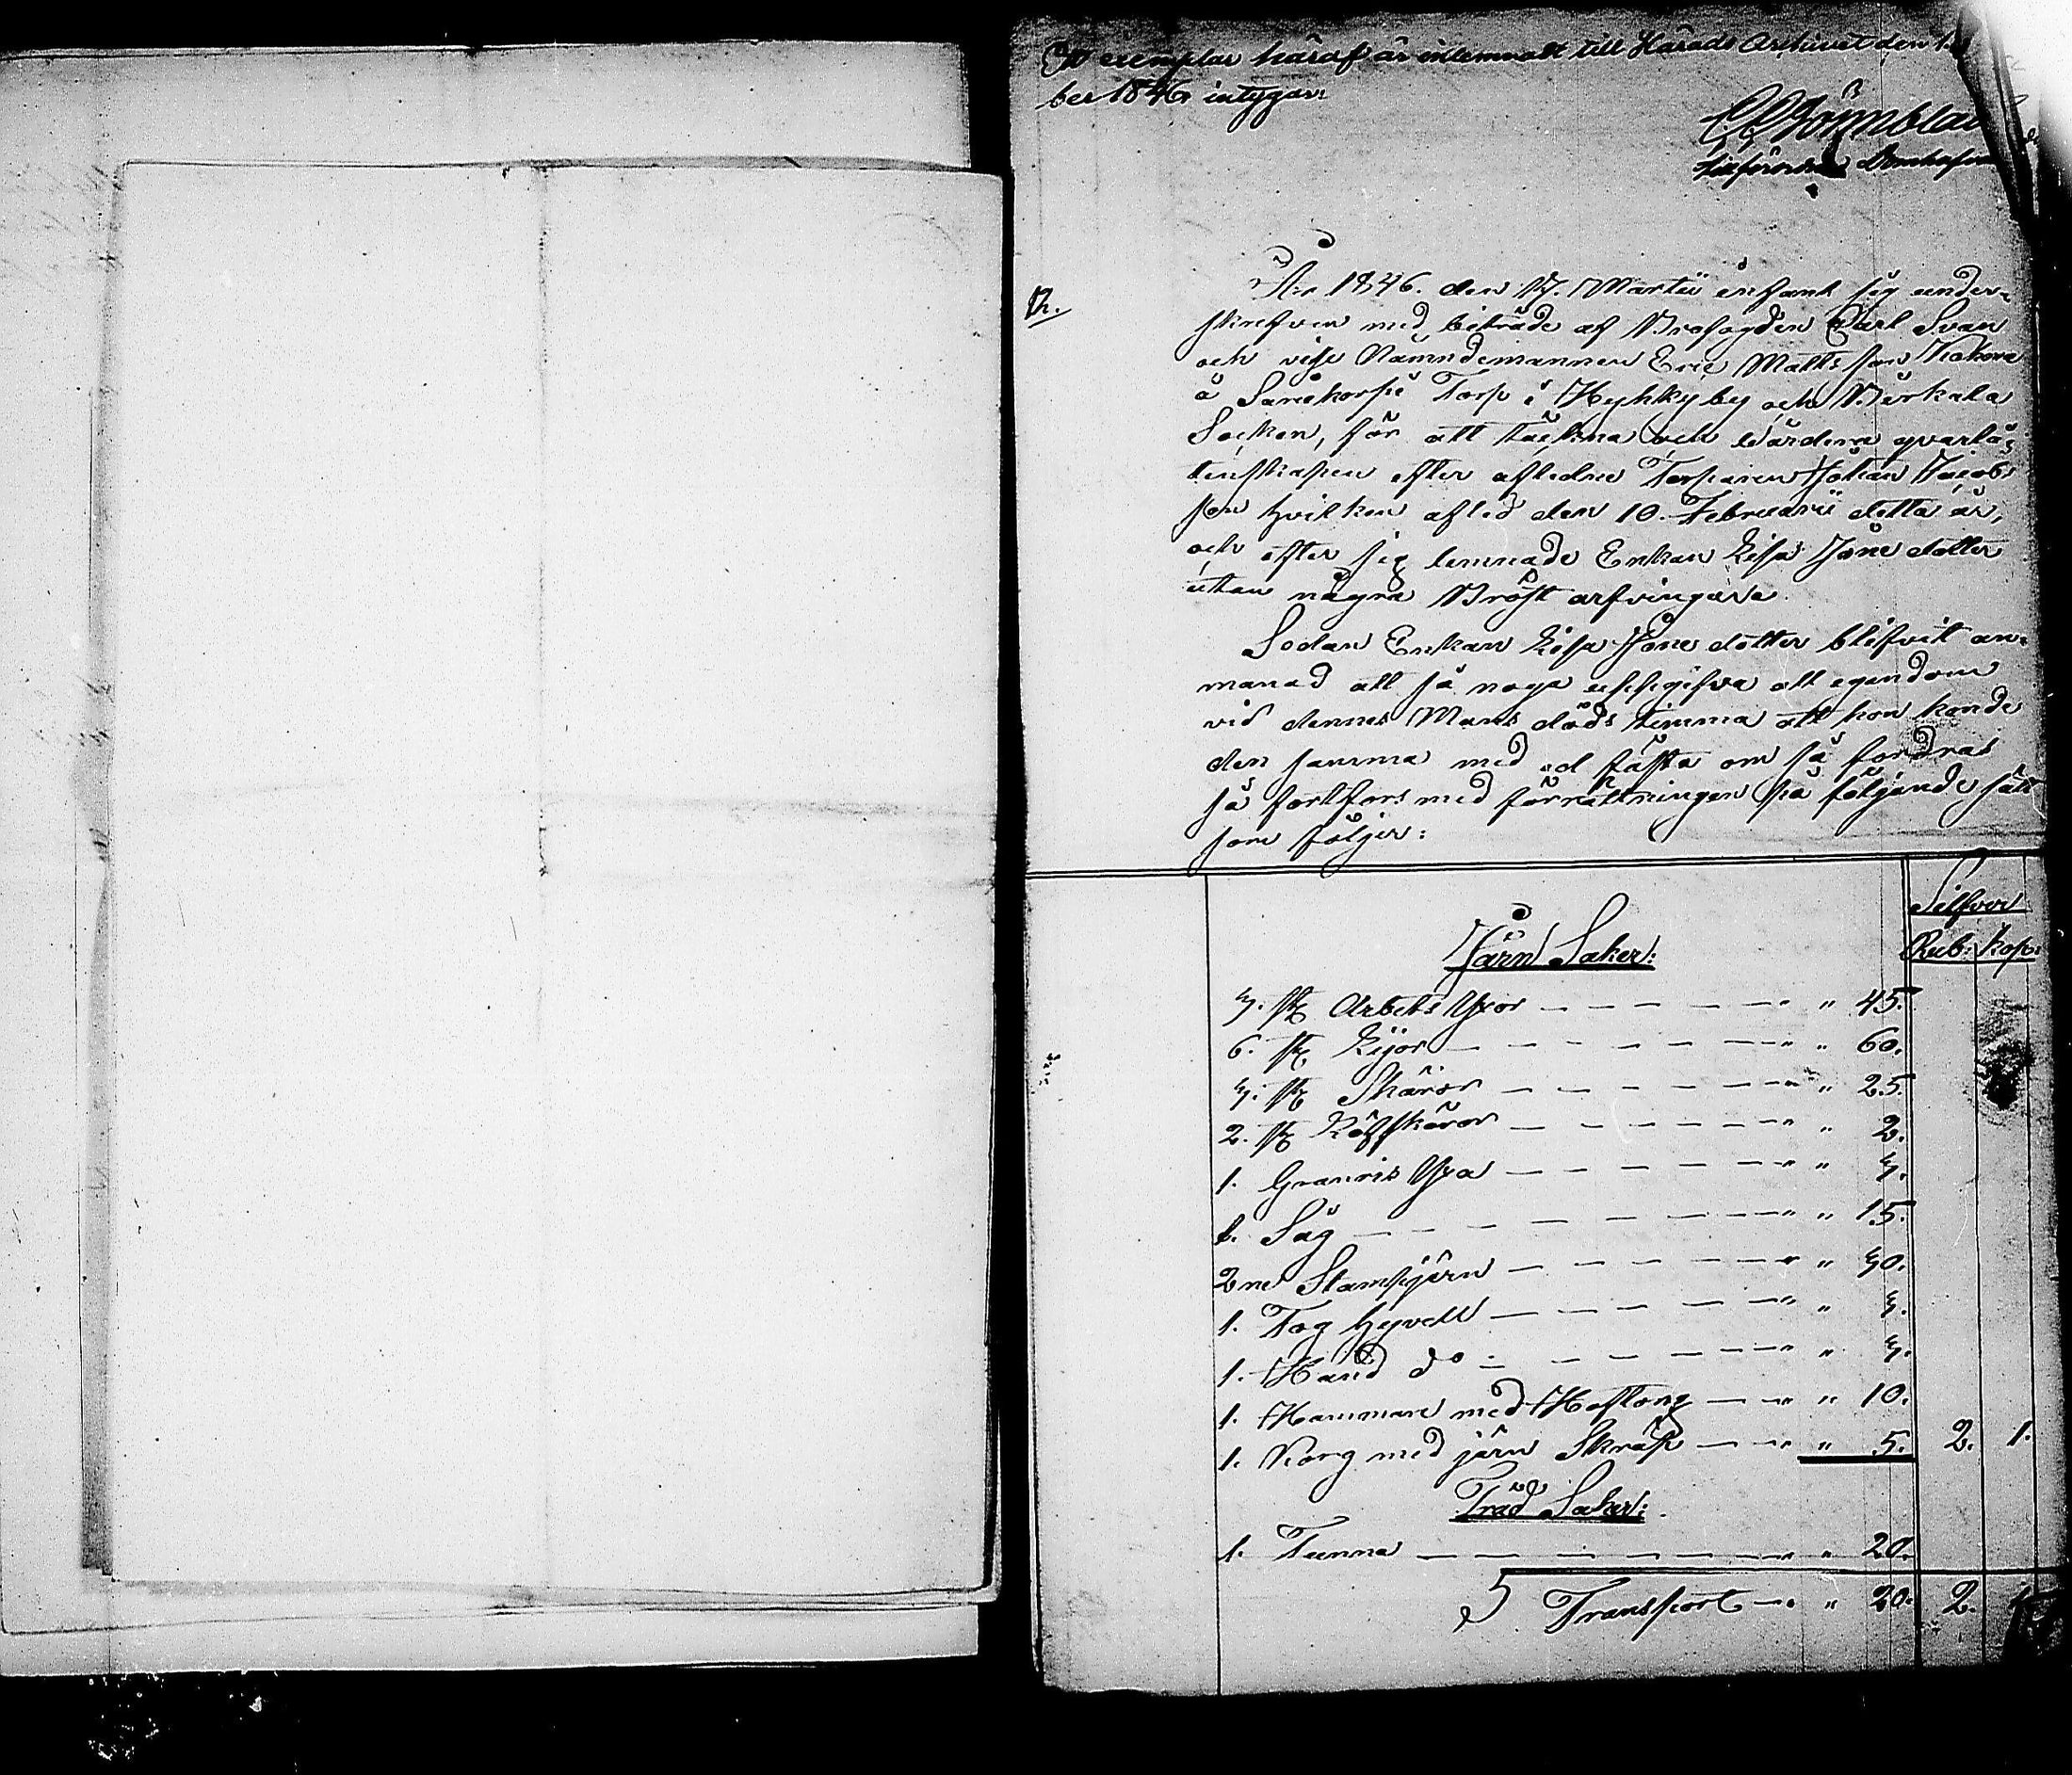 Ett exemplar häraf är inlemnadt till Härads Archivet den
ber 1846 intygar:
Domhafvande
12.
År 1846. den 17. Martii infant sig under-
skrefven med biträde af Brofogden Carl Svan
och vise Nämndemannen Eric Mattsson Kokova
å Sarikorpi Torp i Hyhky by och Birkala
Socken, för att täckna och värdera qvarlå-
tenskapen efter afledne Torparen Johan Jacobs
son hvilken afled den 10. Februarii detta år,
och efter sig lemnade Enkan Lisa Jöns dotter
utan några Bröst arfvingare.
Sedan Enkan Lisa Jöns dotter blifvit an-
manad att så noga uppgifva all egendom
vid dennes Mans döds timma att hon kunde
den samma med ed fästa om så fordras
så fortfors med förrättningen på följande sätt
som följer:
Silfver
Rub: Kop:
Järn Saker:
3. st. Arbets Yxor — — — — — " 45.
6. st. Lijor — — — — — " 60.
3. st. Skäror — — — — — " 25.
2. st. Löfskäror — — — — — " 2.
1. Granris Yxa — — — — — " 3.
1. Såg — — — — — " 15.
2ne Stampjärn — — — — — " 30.
1. Tog hyvell — — — — — " 3.
1. Hand do — — — — — " 3.
1. Hammare med Hoftong — — " 10.
1. Korg med järn Skräp — — " 5. 2. 1.
Träd Saker:
1. Tunna — — — — — " 20.
Transport — " 20. 2. 1.